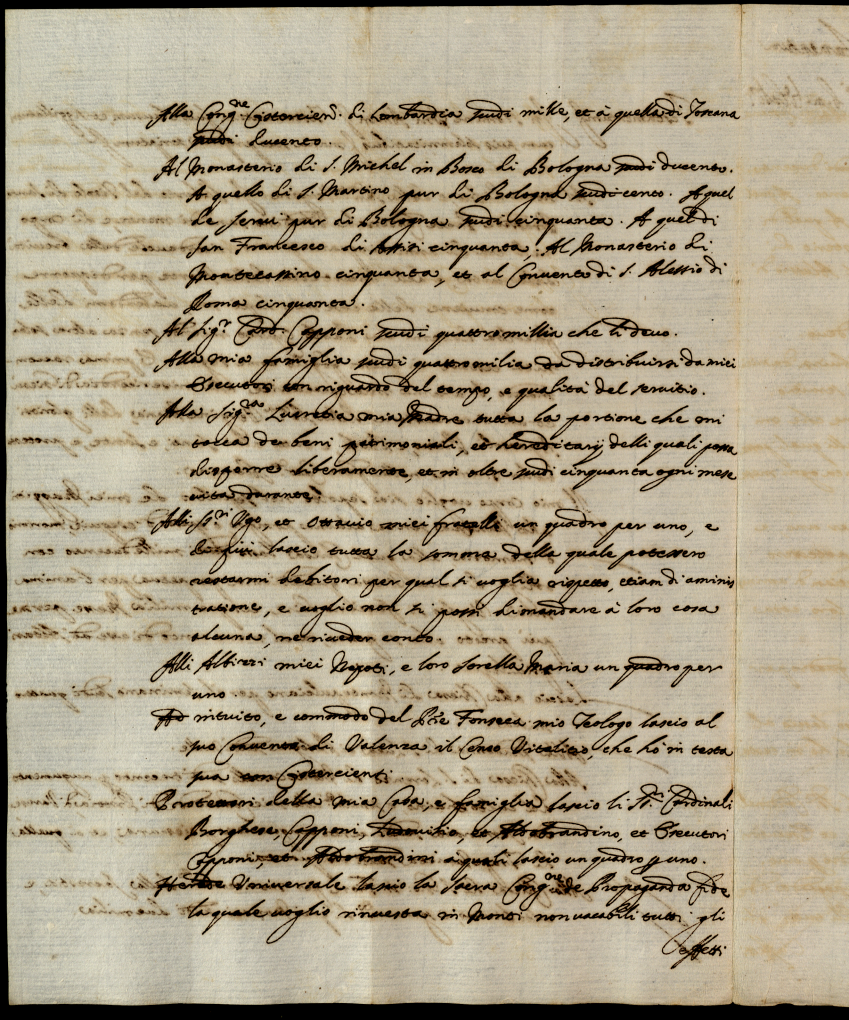 Alla Cong.ne Cisterciens. di Lombardia scudi mille, et à quella di Toscana
scudi ducento.
Al Monasterio di S. Michel in Bosco di Bologna scudi ducento.
A quello di S. Martino pur di Bologna scudi cento. A quel
de Servi pur di Bologna scudi cinquanta. A quel di
San Francesco di Assisi cinquanta, Al Monasterio di
Montecassino cinquanta, et al Convento di S. Alessio di
Roma cinquanta.
Al Sig.r Card. Capponi scudi quattromillia che li devo.
Alla mia famiglia scudi quattromilia da distribuirsi da miei
Esecutori con riguardo del tempo, e qualità del servitio.
Alla Sig.ra Lucretia mia Madre tutta la portione che mi
tocca de beni patrimoniali, et hereditarij delli quali possa
disporre liberamente, et in oltre scudi cinquanta ogni mese
vita durante.
Alli SS.ri Ugo, et Ottavio miei fratelli un quadro per uno, e
di più lascio tutta la somma della quale potessero
restarmi debitori per qual si voglia rispetto, etiam di aminis
tratione, e voglio non si possi dimandare à loro cosa
alcuna, ne riveder conto.
Alli Albirezi miei Nepoti, e loro sorella Maria un quadro per
uno.
Ad intuito, e commodo del P.re Fonseca mio Teologo lascio al
suo Convento di Valenza il Censo Vitalitio, che hò in testa
sua con Cisterciensi
Protettori della mia Casa, e famiglia lascio li SS.ri Cardinali
Borghese, Capponi, Ludovisio, et Aldobrandino, et Esecutori
Capponi, et Aldobrandini a quali lascio un quadro p uno.
Herede Universale lascio la Sacra Cong.ne de Propaganda fide
la quale voglio rinvesta in Monti non vacabili tutti gli
effetti